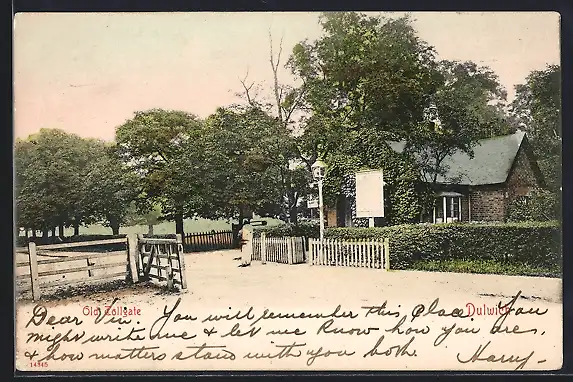 Old Tollgate
Dulwich
Dear Vin, You will remember this, place. You
might write me & let me know how you are,
& how matters stand with you both. Harry-
14145